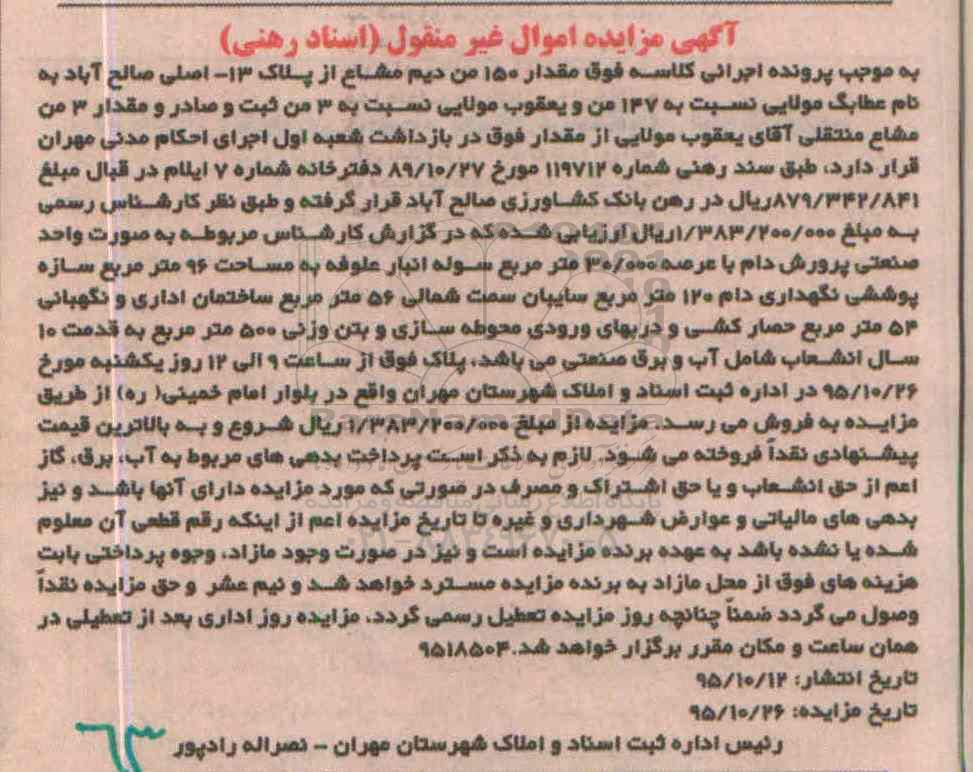 آگهی مزایده اموال غیر منقول (اسناد رهنی)
به موجب پرونده اجرائی کلاسه فوق مقدار ۱۵۰ من دیم مشاع از پلاک ۱۳- اصلی صالح آباد به
نام عطابگ مولایی نسبت به ۱۴۷ من و یعقوب مولایی نسبت به ۳ من ثبت و صادر و مقدار ۳ من
مشاع منتقلی آقای یعقوب مولایی از مقدار فوق در بازداشت شعبه اول اجرای احکام مدنی مهران
قرار دارد، طبق سند رهنی شماره ۱۱۹۷۱۲ مورخ ۸۹/۱۰/۲۷ دفترخانه شماره ۷ ایلام در قبال مبلغ
۸۷۹/۳۴۲/۸۴۱ریال در رهن بانک کشاورزی صالح آباد قرار گرفته و طبق نظر کارشناس رسمی
به مبلغ ۱/۳۸۳/۲۰۰/۰۰۰ریال ارزیابی شده که در گزارش کارشناس مربوطه به صورت واحد
صنعتی پرورش دام با عرصه ۳۰/۰۰۰ متر مربع سوله انبار علوفه به مساحت ۹۶ متر مربع سازه
پوششی نگهداری دام ۱۲۰ متر مربع سایبان سمت شمالی ۵۶ متر مربع ساختمان اداری و نگهبانی
۵۴ متر مربع حصار کشی و دربهای ورودی محوطه سازی و بتن وزنی ۵۰۰ متر مربع به قدمت ۱۰
سال انشعاب شامل آب و برق صنعتی می باشد، پلاک فوق از ساعت ۹ الی ۱۲ روز یکشنبه مورخ
۹۵/۱۰/۲۶ در اداره ثبت اسناد و املاک شهرستان مهران واقع در بلوار امام خمینی( ره) از طریق
مزایده به فروش می رسد. مزایده از مبلغ ۱/۳۸۳/۲۰۰/۰۰۰ ریال شروع و به بالاترین قیمت
پیشنهادی نقداً فروخته می شود. لازم به ذکر است پرداخت بدهی های مربوط به آب، برق، گاز
اعم از حق انشعاب و یا حق اشتراک و مصرف در صورتی که مورد مزایده دارای آنها باشد و نیز
بدهی های مالیاتی و عوارض شهرداری و غیره تا تاریخ مزایده اعم از اینکه رقم قطعی آن معلوم
شده یا نشده باشد به عهده برنده مزایده است و نیز در صورت وجود مازاد، وجوه پرداختی بابت
هزینه های فوق از محل مازاد به برنده مزایده مسترد خواهد شد و نیم عشر و حق مزایده نقداً
وصول می گردد ضمناً چنانچه روز مزایده تعطیل رسمی گردد، مزایده روز اداری بعد از تعطیلی در
همان ساعت و مکان مقرر برگزار خواهد شد.۹۵۱۸۵۰۴
تاریخ انتشار: ۹۵/۱۰/۱۲
تاریخ مزایده: ۹۵/۱۰/۲۶
رئیس اداره ثبت اسناد و املاک شهرستان مهران - نصراله رادپور
۶۳